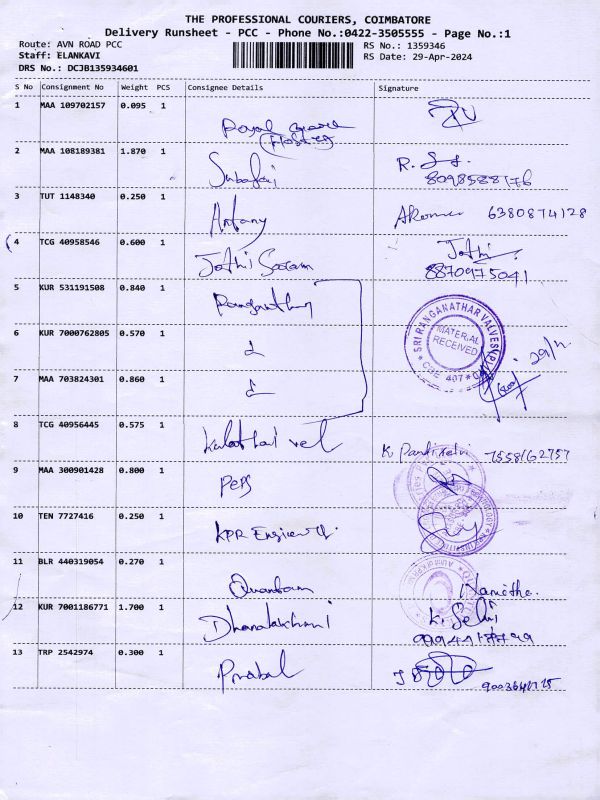 THE PROFESSIONAL COURIERS, COIMBATORE
Delivery Runsheet - PCC - Phone No.:0422-3505555 - Page No.:1
Route: AVN ROAD PCC
RS No.: 1359346
Staff: ELANKAVI
RS Date: 29-Apr-2024
DRS No.: DCJB135934601
S No Consignment No Weight PCS Consignee Details Signature
1 MAA 109702157 0.095 1 Royal
2 MAA 108189381 1.870 1 R.
3 TUT 1148340 0.250 1 Antany 6380874128
4 TCG 40958546 0.600 1 Jothi Jothi
8870975041
5 KUR 531191508 0.840 1
6 KUR 7000762805 0.570 1
7 MAA 703824301 0.860 1
SRI RANGANATHAR VALVES
MATERIAL RECEIVED
CBE 407
8 TCG 40956445 0.575 1 vel K 7558162757
9 MAA 300901428 0.800 1 Peps
10 TEN 7727416 0.250 1 KPR
11 BLR 440319054 0.270 1 Quantam Namitha.
12 KUR 7001186771 1.700 1 Dhanalakshmi K. Selvi
13 TRP 2542974 0.300 1